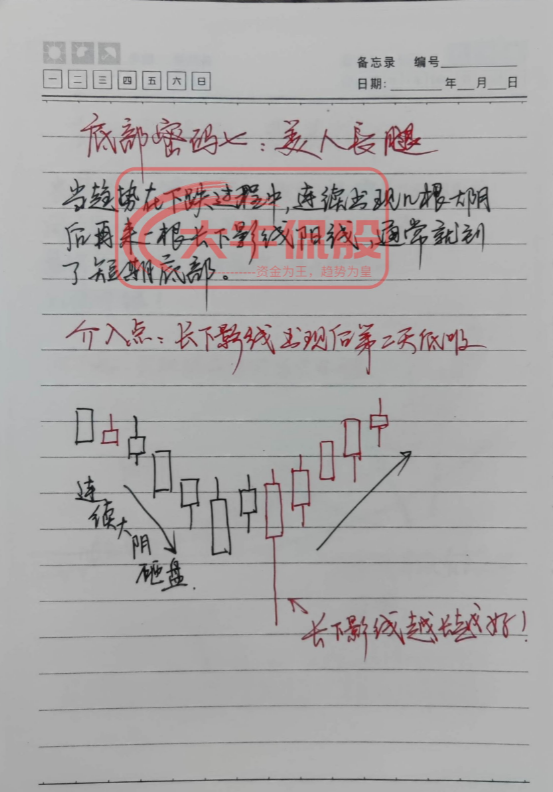 备忘录 编号
一 二 三 四 五 六 日
日期: 年 月 日
底部密码七:美人長腿
当趋势在下跌过程中,连续出现几根大阴
后再来一根长下影线阳线,通常就到
了短期底部。
大牛侃股
资金为王,趋势为皇
介入点:长下影线出现后第二天低吸
连续大阴
砸盘
长下影线越长越好!